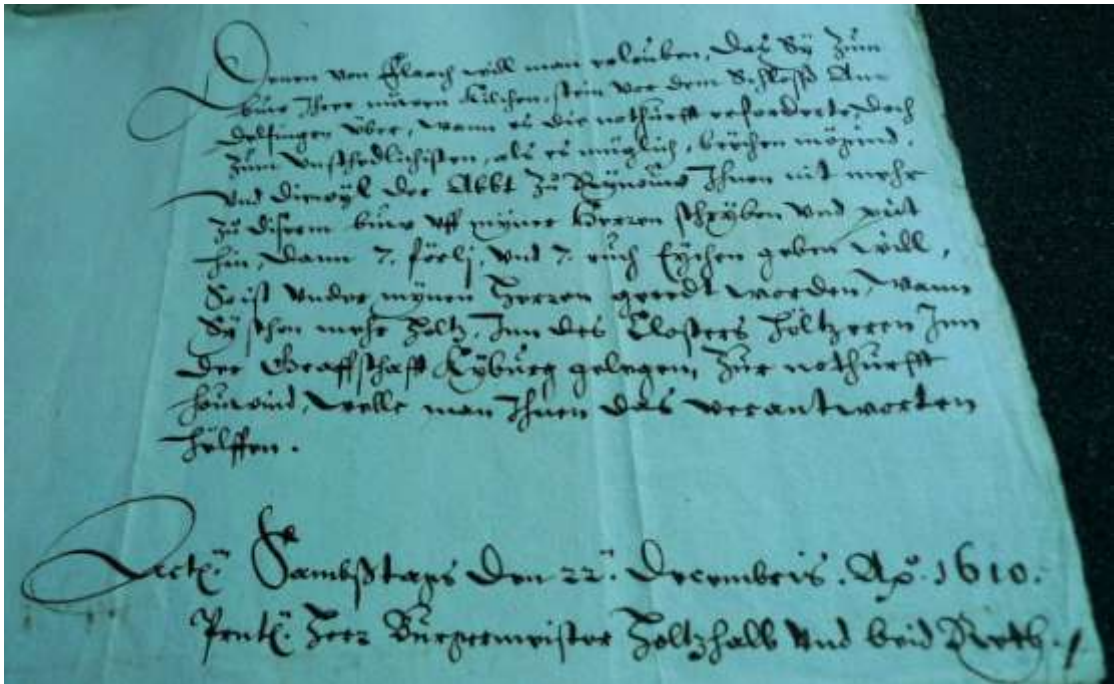 Denen von Flaach will man erlouben, das Sy zum
buw Jhrer nüwen Kilchen, stein vor dem Schloss An-
delfingen über, wann es die nothurfft erforderte, doch
zum unschedlichisten, als es müglich, brächen mögind.
Und diewyl der Abbt zu Rynouw Jhnen nit mehr
zu disem buw uff myner Herren schryben und pitt
hin, dann 7. före, und 7. ruch Eychen geben will,
So ist under mynen Herren geredt worden, wann
Sy schon mehr Holtz, Jnn des Closters höltzeren Jnn
der Graffschafft Kyburg gelegen, zur nothurfft
houwind, welle man Jhnen das verantworten
hälffen.
Actū. Sambstags den 22. Decembris. Aō. 1610.
Pnt. Herr Burgermeister Holtzhalb und beid Reth.